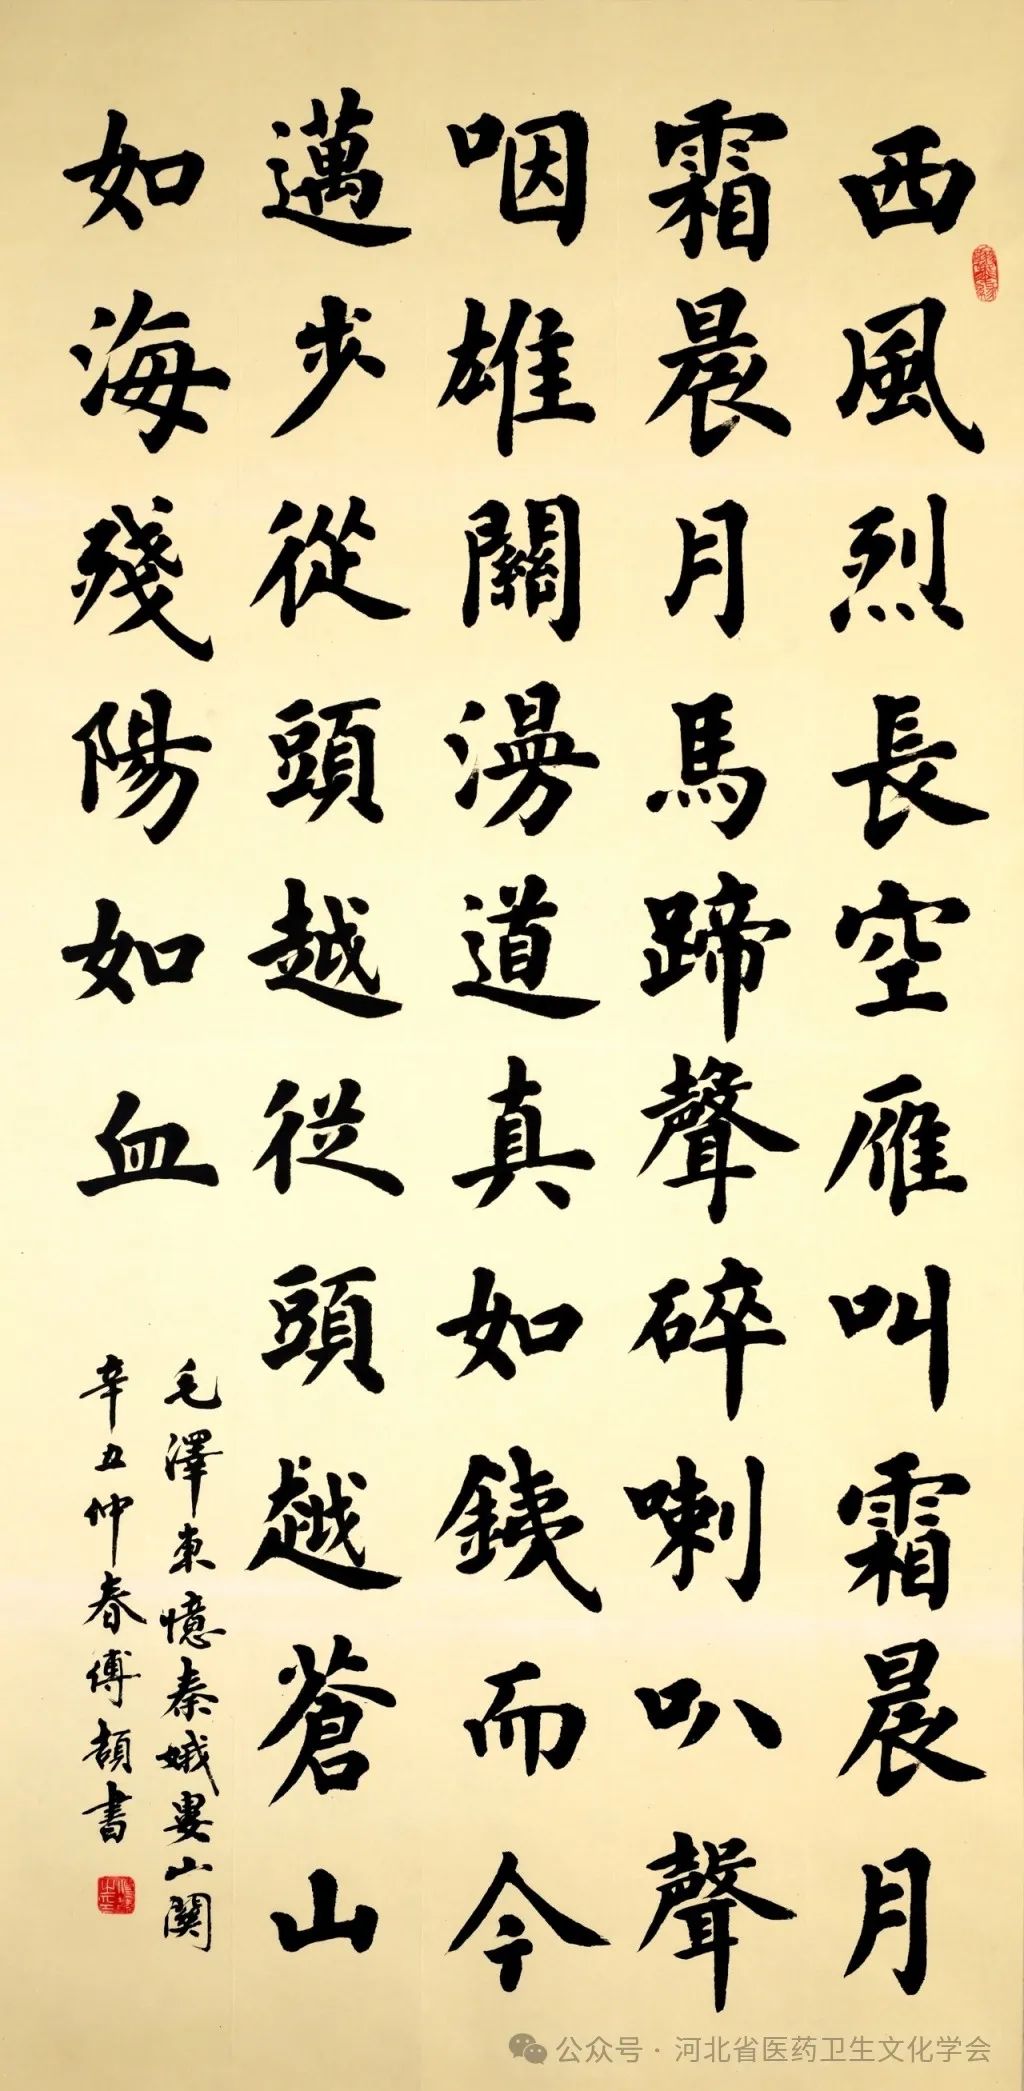 西風烈長空雁叫霜晨月
霜晨月馬蹄聲碎喇叭聲
咽雄關漫道真如鐵而今
邁步從頭越從頭越蒼山
如海殘陽如血
毛澤東憶秦娥婁山關
辛丑仲春傅頡書
公众号·河北省医药卫生文化学会